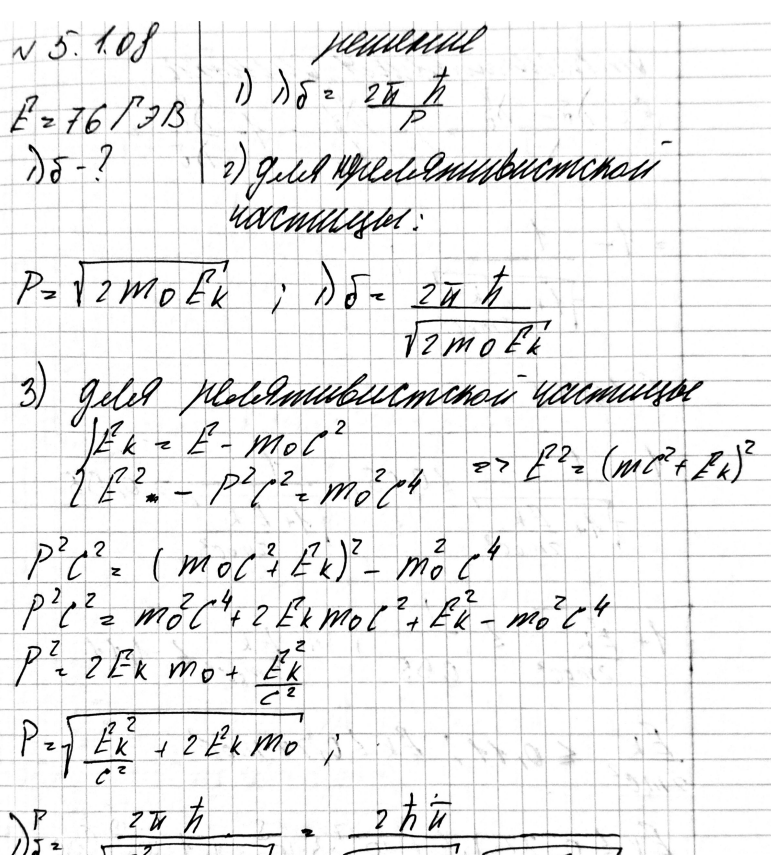 N 5.1.08 решение
E = 76 ГЭВ
1) λб = 2π ħ / P
λб - ?
2) для нерелятивистской
частицы:
P = √(2 m₀ Eк) ; λб = 2π ħ / √(2 m₀ Eк)
3) для релятивистской частицы
{ Eк = E - m₀c²
{ E² - P²c² = m₀²c⁴ => E² = (mc² + Eк)²
P²c² = (m₀c² + Eк)² - m₀²c⁴
P²c² = m₀²c⁴ + 2Eк m₀c² + Eк² - m₀²c⁴
P² = 2Eк m₀ + Eк²/c²
P = √(Eк²/c² + 2Eк m₀) ;
λбᴾ = 2π ħ = 2ħπ